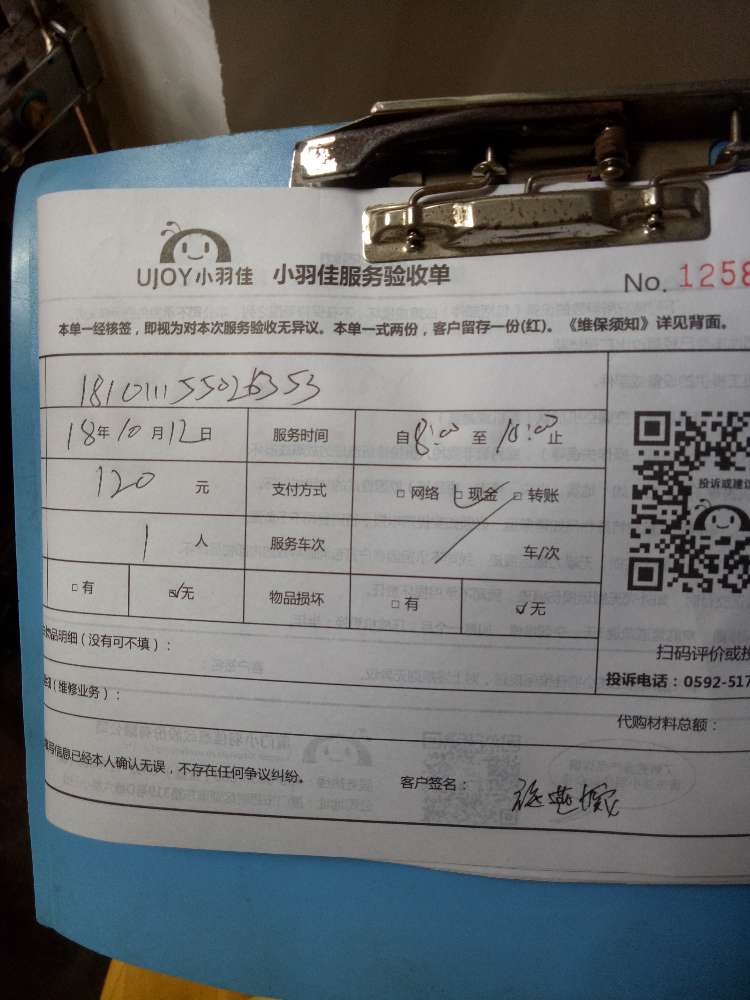 UJOY小羽佳 小羽佳服务验收单 No. 1258
本单一经核签，即视为对本次服务验收无异议。本单一式两份，客户留存一份(红)。《维保须知》详见背面。
18年10月12日 服务时间 自8:00至10:00止
120 元 支付方式 □网络 ☑现金 □转账
1 人 服务车次 车/次
□有 ☑无 物品损坏 □有 ☑无
投诉或建议
物品明细（没有可不填）：
扫码评价或投
（维修业务）：
投诉电话：0592-517
代购材料总额：
填写信息已经本人确认无误，不存在任何争议纠纷。 客户签名：